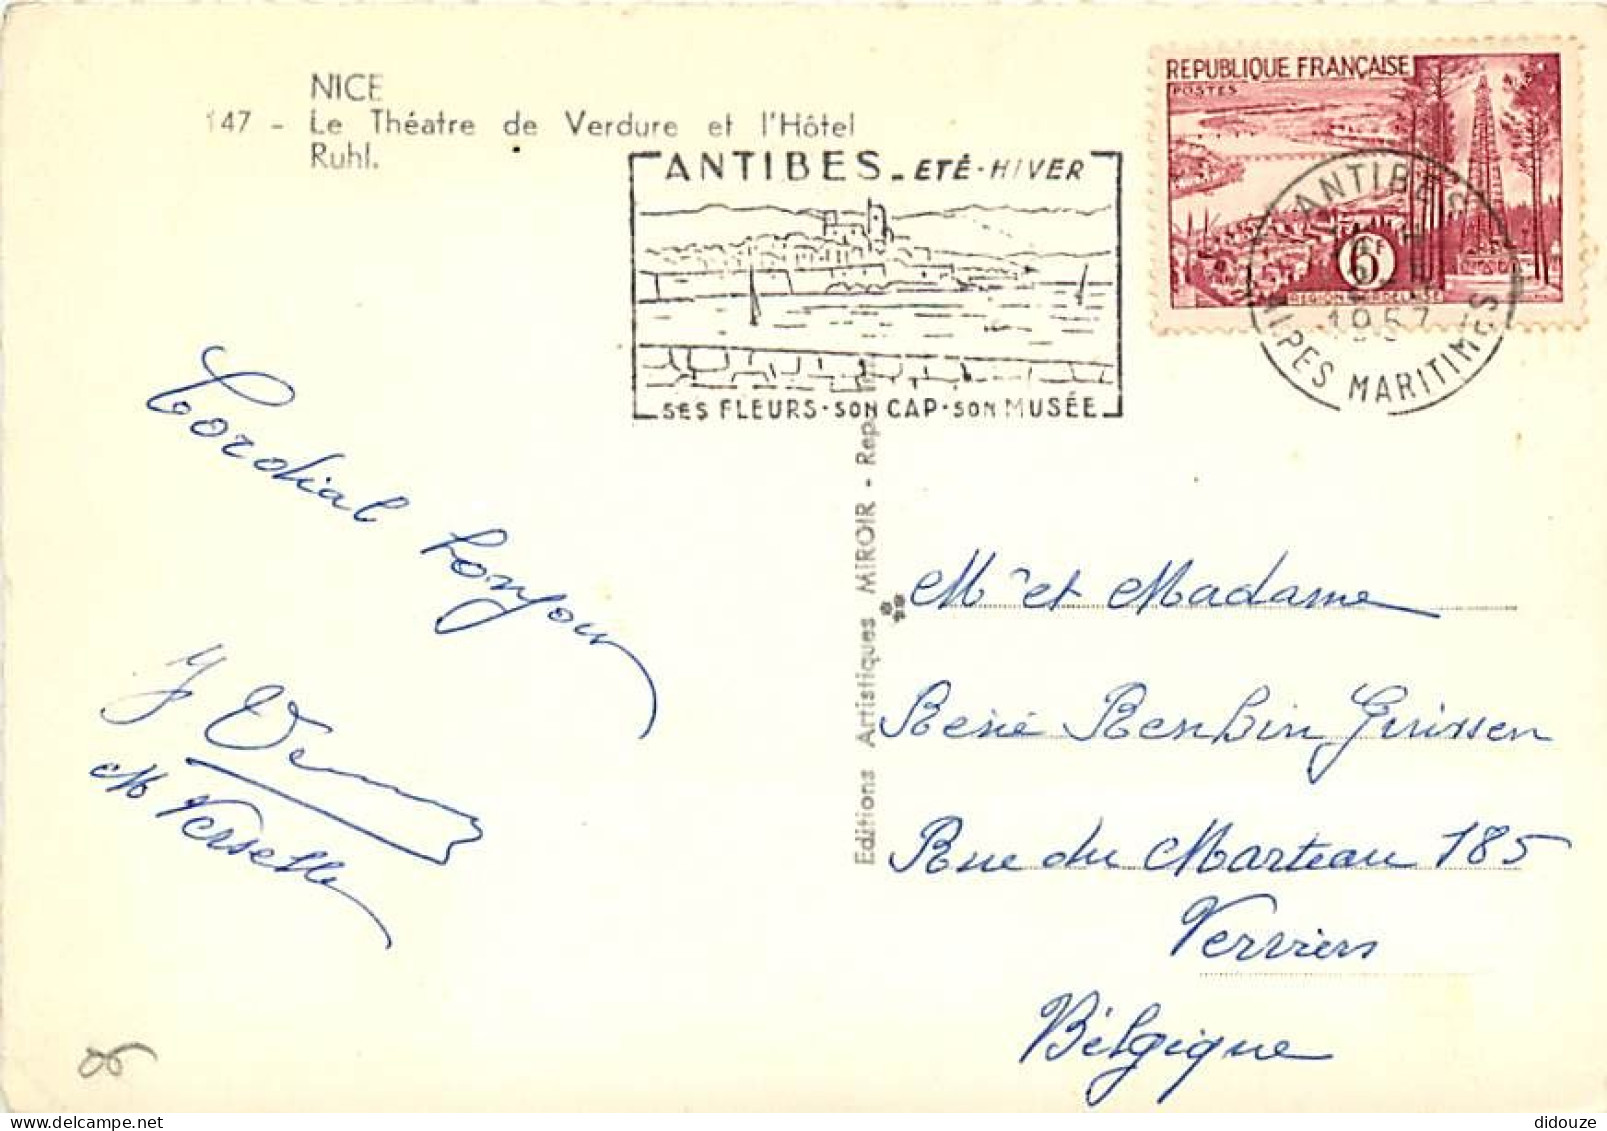 NICE
147 - Le Théatre de Verdure et l'Hôtel
Ruhl.
ANTIBES - ETÉ - HIVER
SES FLEURS · SON CAP · SON MUSÉE
REPUBLIQUE FRANÇAISE
POSTES
6F
REGION BORDELAISE
ANTIBES
1957
ALPES MARITIMES
Editions Artistiques MIROIR - Rep
Cordial bonjour
M Verselle
Mr et Madame
René Renbin
Rue du Marteau 185
Verviers
Bélgique
06
didouze